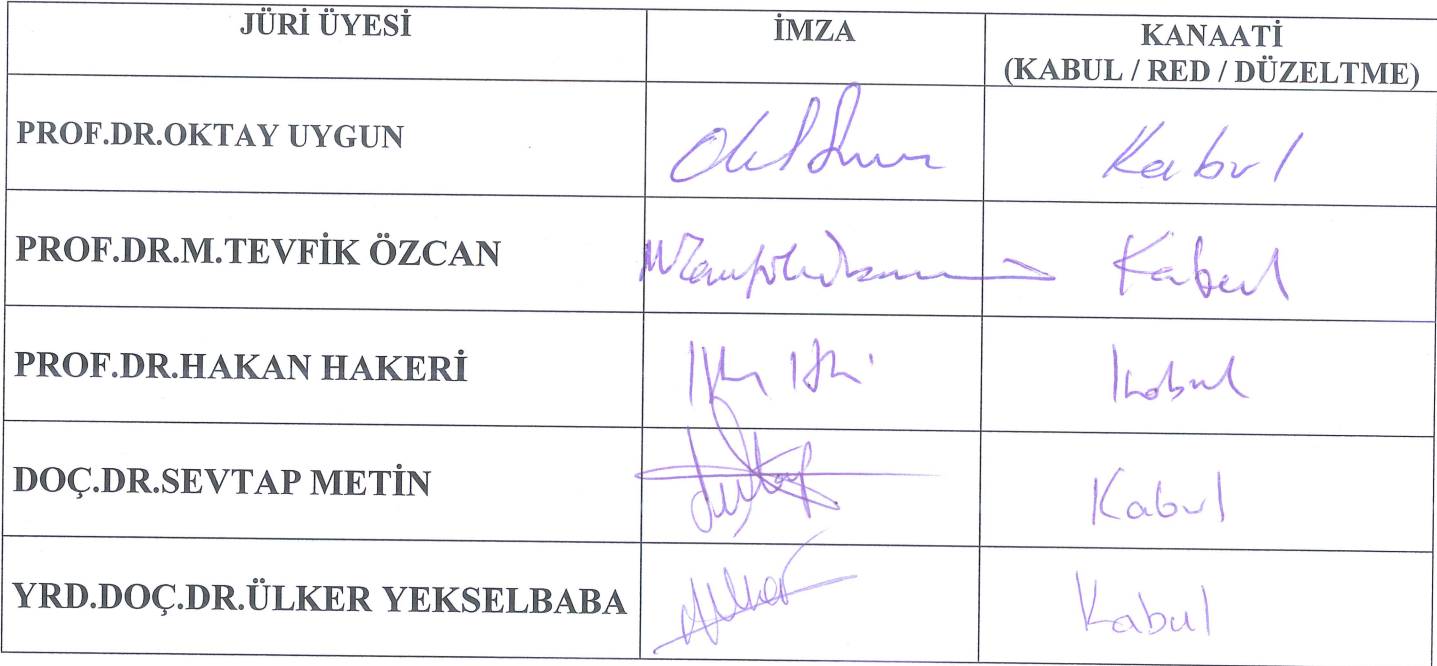 JÜRİ ÜYESİ İMZA KANAATİ
(KABUL / RED / DÜZELTME)
PROF.DR.OKTAY UYGUN Kabul
PROF.DR.M.TEVFİK ÖZCAN Kabul
PROF.DR.HAKAN HAKERİ Kabul
DOÇ.DR.SEVTAP METİN Kabul
YRD.DOÇ.DR.ÜLKER YEKSELBABA Kabul